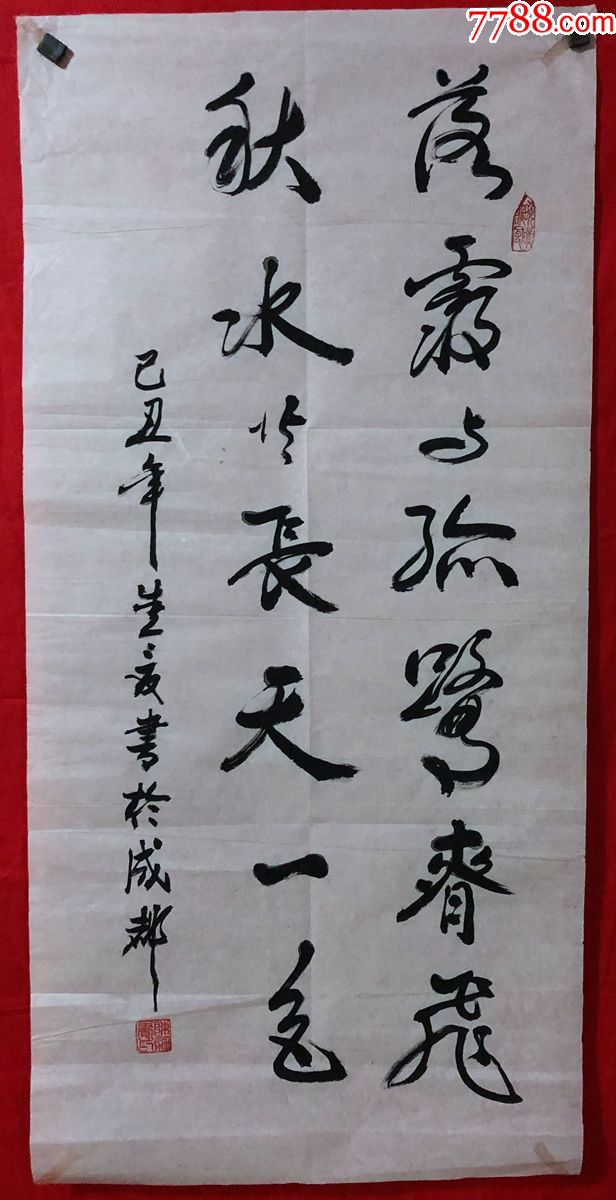 7788.com
落霞与孤鹭齐飞
秋水共長天一色
己丑年 書於成都